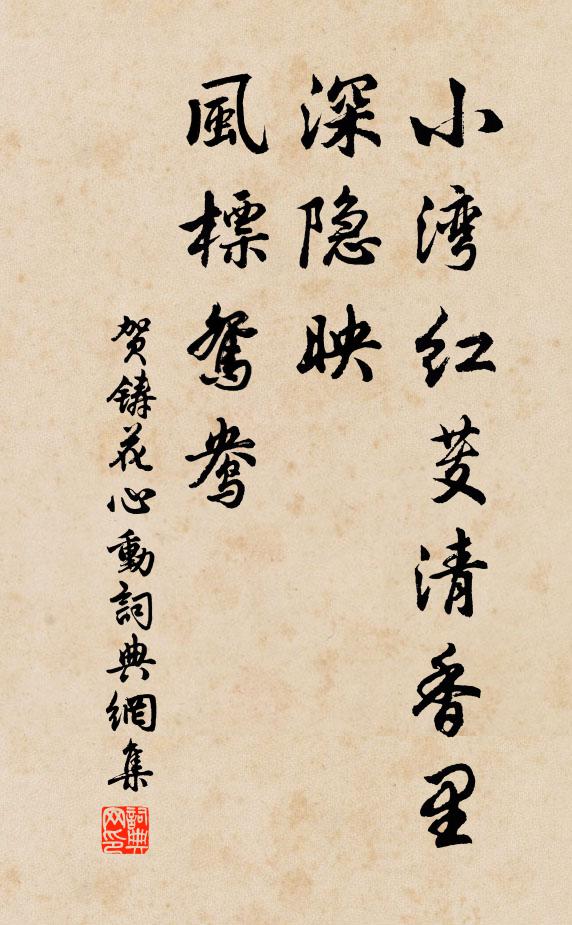 小湾红芰清香里
深隐映
風標鴛鴦
贺鑄花心動詞典網集
詞典网印